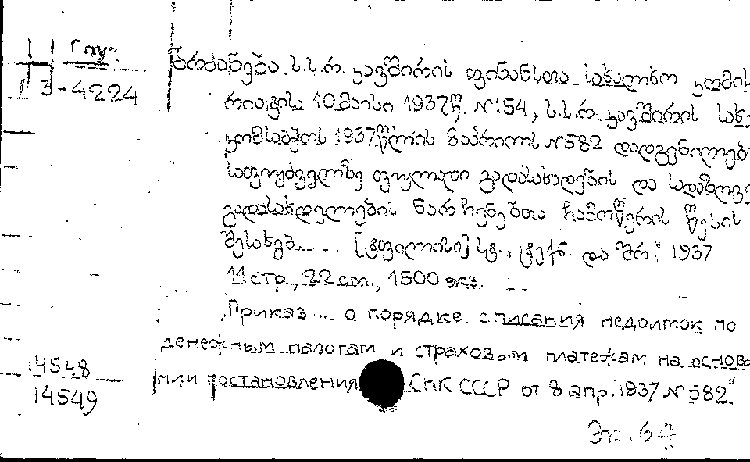 Груз.
3-4224
ბრძანება ს.ს.რ. კავშირის ფინანსთა სახალხო კომის
რიატისა 10 მაისი 1937წ. №154, ს.ს.რ. კავშირის სახ
კომსაბჭოს 1937 წლის 8 აპრილს №582 დადგენილებ
საფუძველზე ფულადი გადასახადების და სადაზღვე
გადასახდელების ნარჩენებთა ჩამოწერის წესის
შესახებ.... [ტფილისი] სტ. და შრ. 1937
11 стр., 22 см., 1500 экз.
Приказ... о порядке списания недоимок по
денежным налогам и страховым платежам на основа
нии постановления СНК СССР от 8 апр. 1937 № 582."
14548
14549
Эк. 64